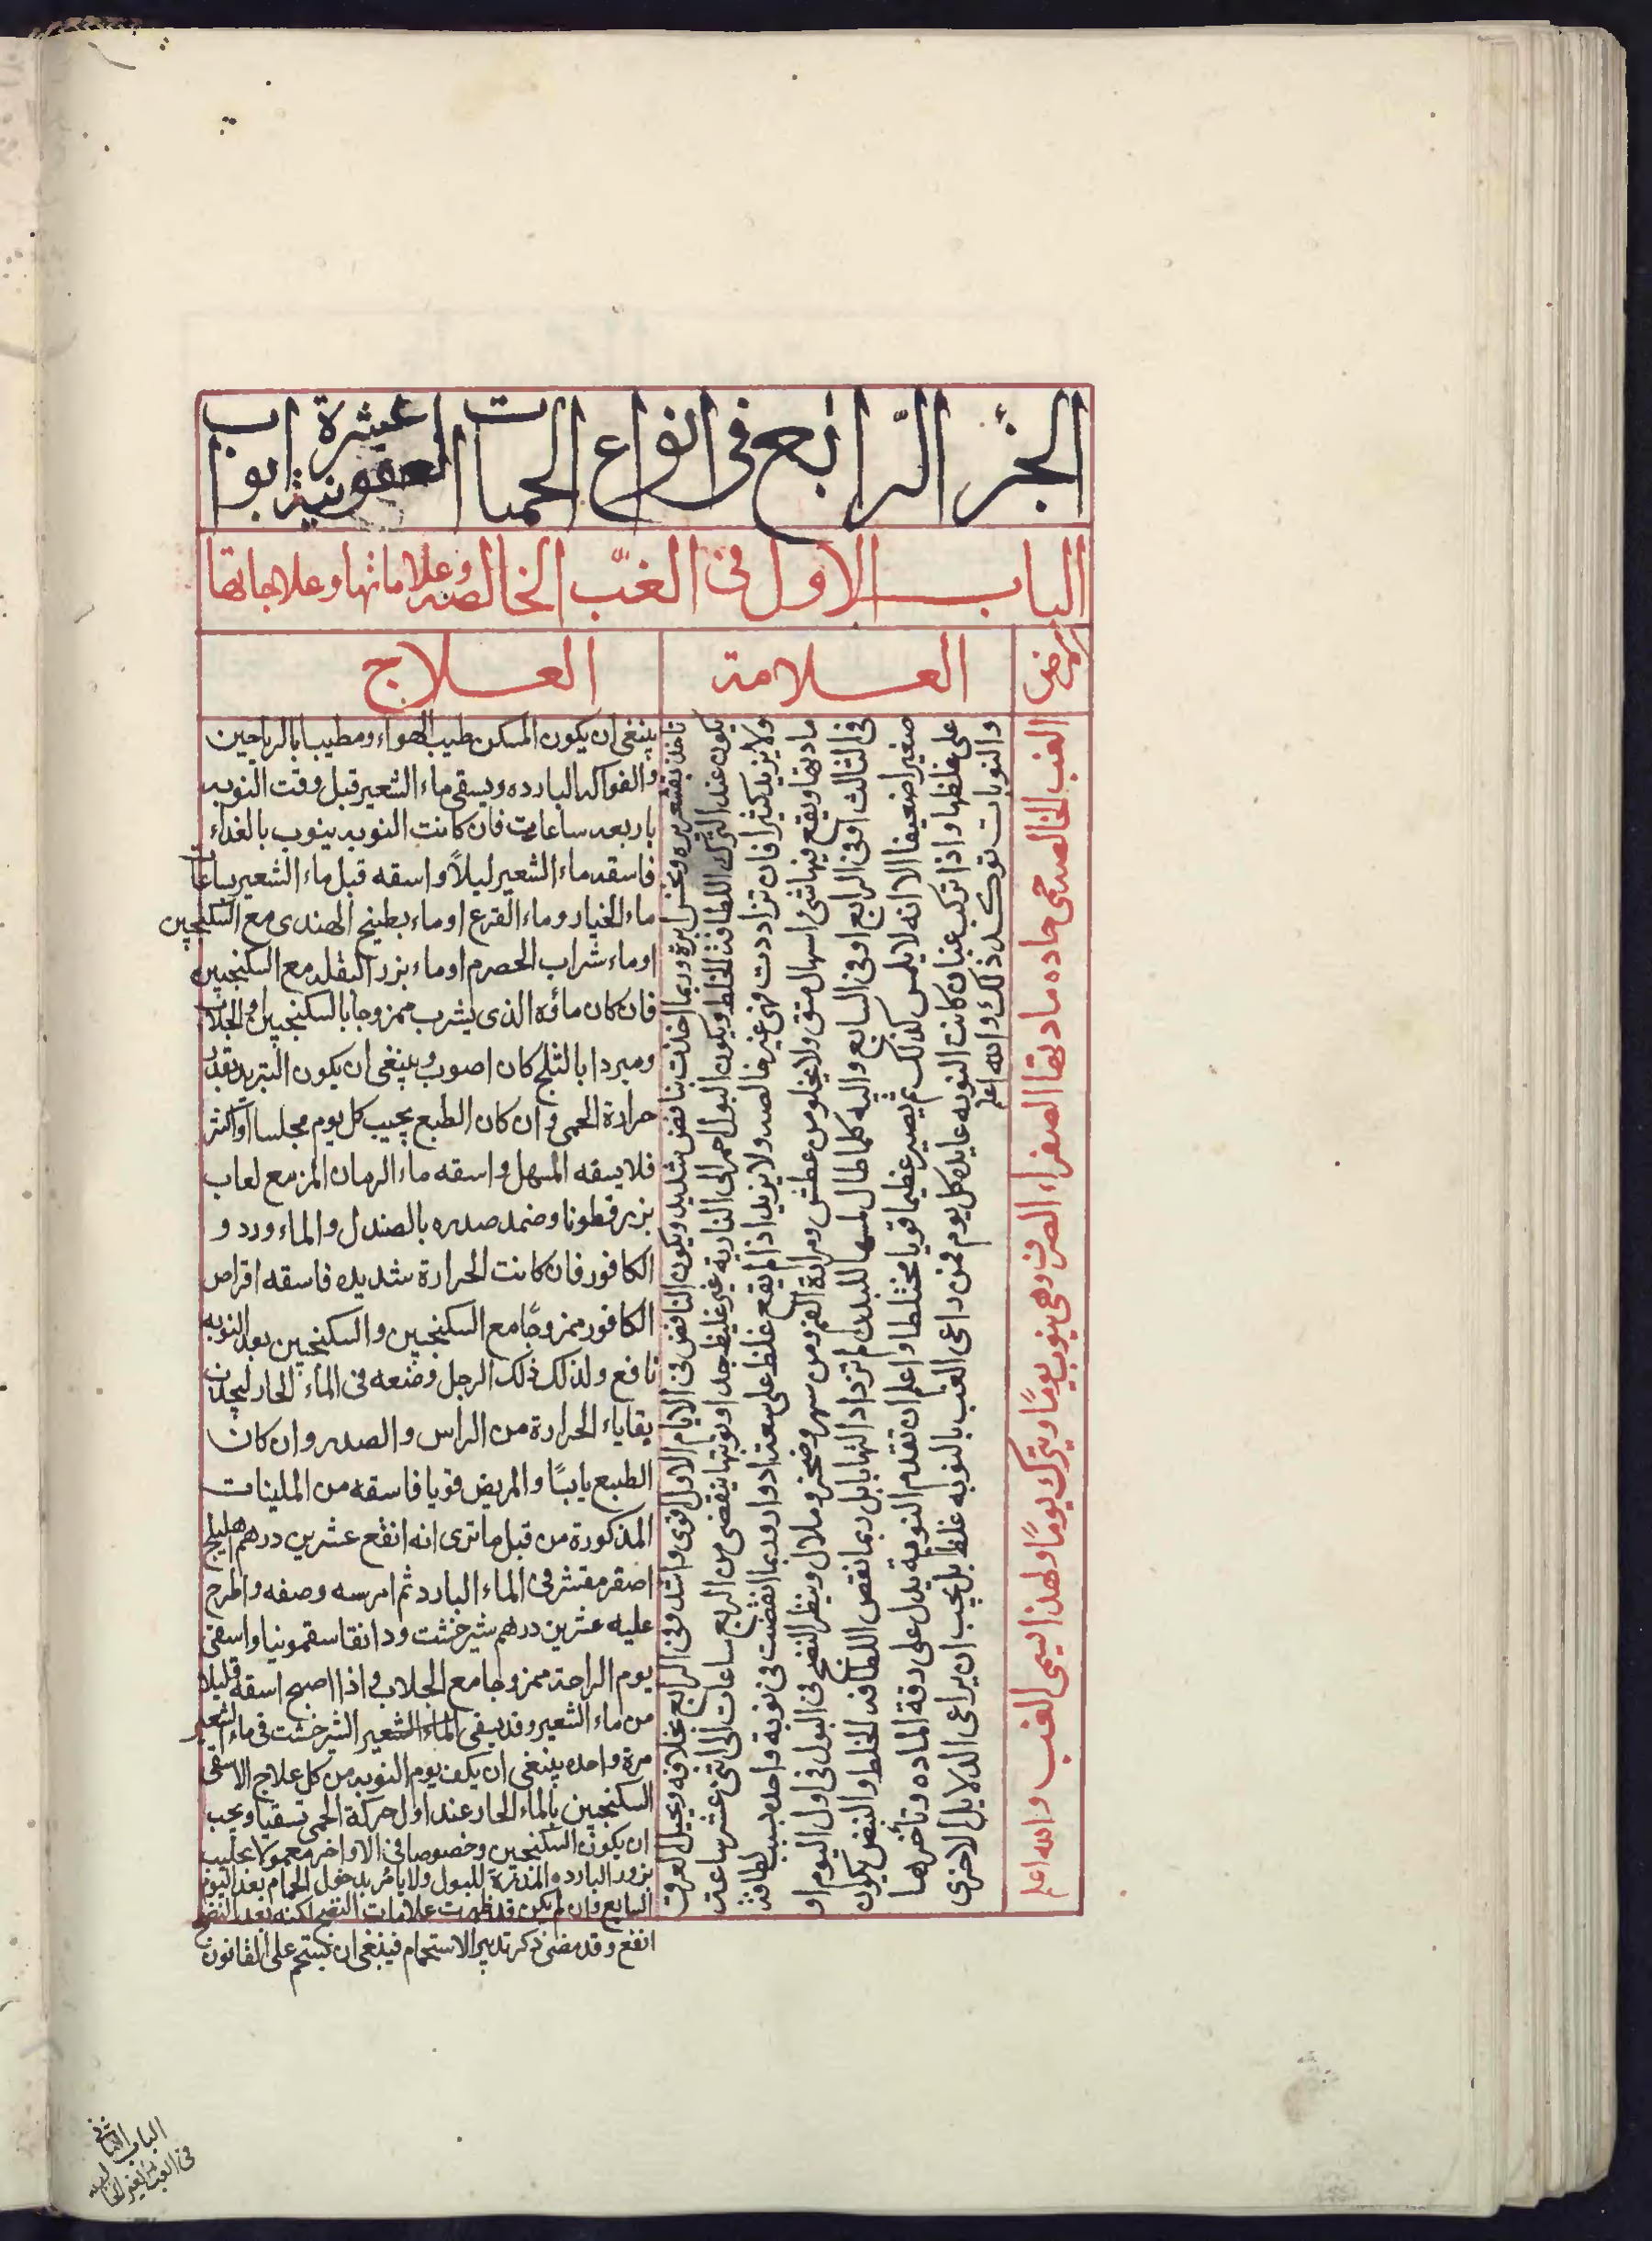 الجزء الرابع في انواع الحميات العفونية عشرة ابواب
الباب الاول في الغب الخالصه وعلاماتها وعلاجاتها
المرض
العلامة
العلاج
الغب الخالصه حمى حاده مادتها الصفراء الصرف وهى ينوب يومًا ويترك يومًا ولهذا يسمى الغب والله اعلم
تاخذ بقشعريره ونخس ابرة وربما اخذت بنافض شديد ويكون النافض في الايام الاول اقوى واشد وفى الرابع بخلافه ويجيل العرق
يكون عند الترك اللطافة الخلط ويكون البول احمر الى النارية غير غليظ جدا ونوبتها ينقضى من الربع ساعات الى اثنى عشر ساعة
ولا يزيد كثيرا فان تزاددت فهى غير خالصه ولا يزيد اذا لم يقع غلط على سبعة ادوار وربما انقضت في نوبة واحده بسبب لطافة
مادتها ويقع فيها شئ اسهال منق ولا يخلو من عطش ومرارة الفم ومن سهر وضجر وملال وينظر النضج في البول في اول اليوم او
في الثالث او في الرابع او في السابع واليه كلما طال لمسها للبدن لم تزداد التهابا بل ربما نقص اللطافه الخلط والنبض يكون
صغيرا ضعيفا الا انه لا يلمس كذلك ثم يصير عظيما قويا مختلطا واعلم ان تقدم النوبة يدل على دقة الماده وتأخرها
على غلظها واذا تركب غبان كانت النوبه عايده كل يوم فمن داعى الغب بالنوبه غلط بل يجب ان يراعى الدلايل الاخرى
والنوبات توكد ذلك والله اعلم
ينبغى ان يكون المسكن طيب الهواء ومطيبا بالرياحين
والفواكه البارده ويسقى ماء الشعير قبل وقت النوبه
باربعه ساعات فان كانت النوبه ينوب بالغداء
فاسقه ماء الشعير ليلاً واسقه قبل ماء الشعير بساعات
ماء الخيار وماء القرع او ماء بطيخ الهندى مع السكنجبين
او ماء شراب الحصرم او ماء بزر البقله مع السكنجبين
فان كان مائه الذى يشرب ممزوجا بالسكنجبين والجلاب
ومبردا بالثلج كان اصوب وينبغى ان يكون التبريد بقدر
حرارة الحمى وان كان الطبع يجيب كل يوم مجلسا او اكثر
فلا يسقه المسهل واسقه ماء الرمان المز مع لعاب
بزر قطونا وضمد صدره بالصندل والماء ورد و
الكافور فان كانت الحرارة شديده فاسقه اقراص
الكافور ممزوجًا مع السكنجبين والسكنجبين بعد النوبه
نافع ولذلك ذلك الرجل وضعه في الماء الحار ليجذب
بقاياء الحرارة من الراس والصدر وان كان
الطبع يابسًا والمريض قويا فاسقه من الملينات
المذكورة من قبل ما ترى انه انفع عشرين درهم هليلج
اصفر مقشر في الماء البارد ثم امرسه وصفه واطرح
عليه عشرين درهم شيرخشت ودانقا سقمونيا واسقى
يوم الراحة ممزوجا مع الجلاب واذا اصبح اسقه قليلا
من ماء الشعير وقد يسقى الماء الشعير الشيرخشت في ماء الشعير
مرة واحده ينبغى ان يكف يوم النوبه من كل علاج الا سقى
السكنجبين بالماء الحار عند اول حركة الحمى تسقيا ويجب
ان يكون السكنجبين وخصوصا في الاواخر معمولا بحليب
بزور البارده المدرة للبول ولا يامر بدخول الحمام بعد اليوم
السابع وان لم يكن قد ظهرت علامات النضج لكنه بعد النضج
انفع وقد مضى ذكر تدبير الاستحمام فينبغى ان يستحم على القانون
الباب الثانى
في الغب الغير الخالصه